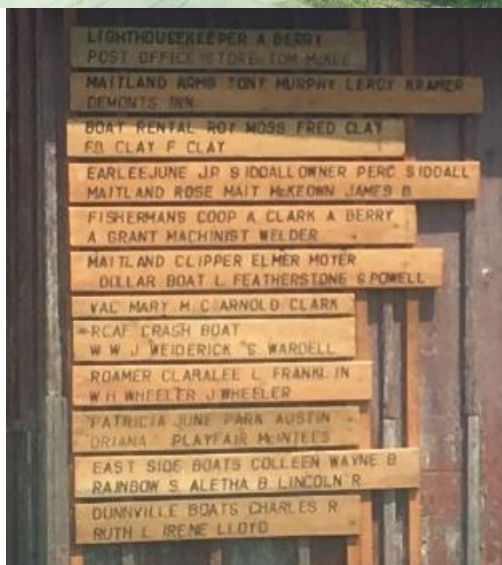 LIGHTHOUSEKEEPER A BERRY
POST OFFICE STORE TOM McKEE
MAITLAND ARMS TONY MURPHY LEROY KRAMER
DEMONTS INN
BOAT RENTAL ROY MOSS FRED CLAY
F.B. CLAY F CLAY
EARLEEJUNE J.P. SIDDALL OWNER PERC SIDDALL
MAITLAND ROSE MAIT McKEOWN JAMES B.
FISHERMANS COOP A CLARK A BERRY
A GRANT MACHINIST WELDER
MAITLAND CLIPPER ELMER MOYER
DOLLAR BOAT L FEATHERSTONE G POWELL
VAC MARY M C ARNOLD CLARK
RCAF CRASH BOAT
W W J WEIDERICK G WARDELL
ROAMER CLARALEE L FRANKLIN
W.H WHEELER J WHEELER
PATRICIA JUNE PARK AUSTIN
ORIANA PLAYFAIR
EAST SIDE BOATS COLLEEN WAYNE B
RAINBOW S. ALETHA B LINCOLN R
DUNNVILLE BOATS CHARLES R
RUTH L IRENE LLOYD